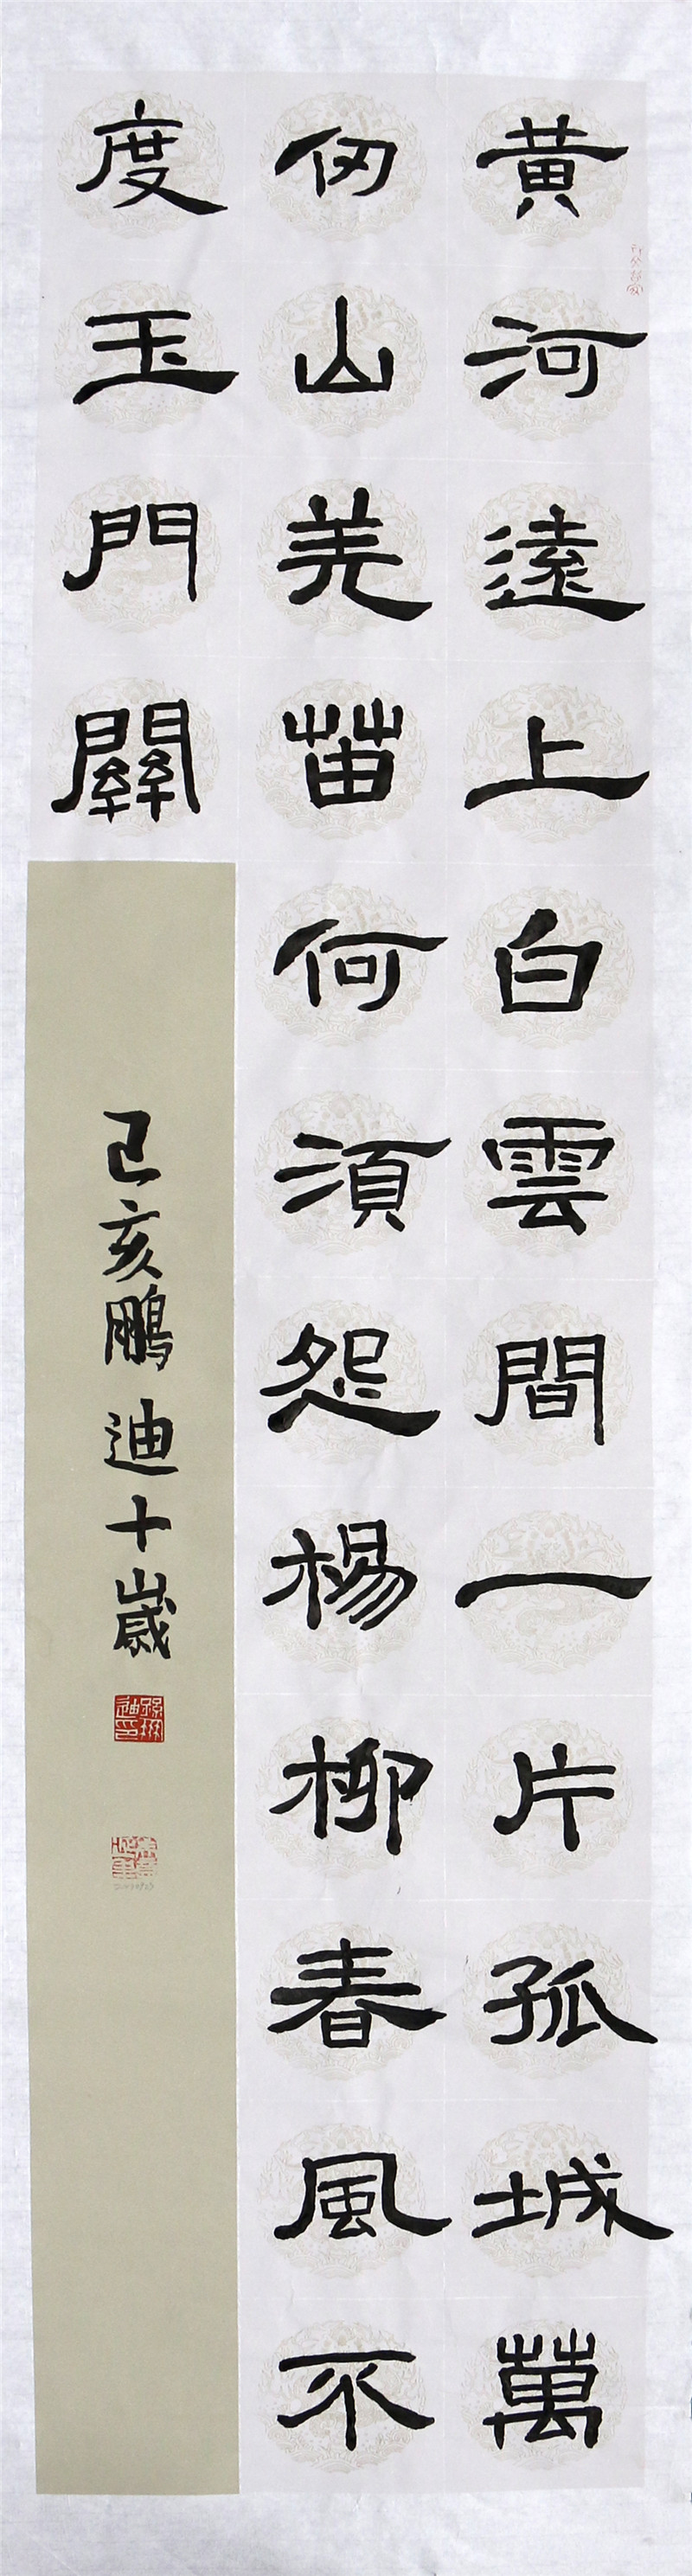 黄河遠上白雲間一片孤城萬
仞山羌苗何須怨楊柳春風不
度玉門關
己亥鵬迪十歲